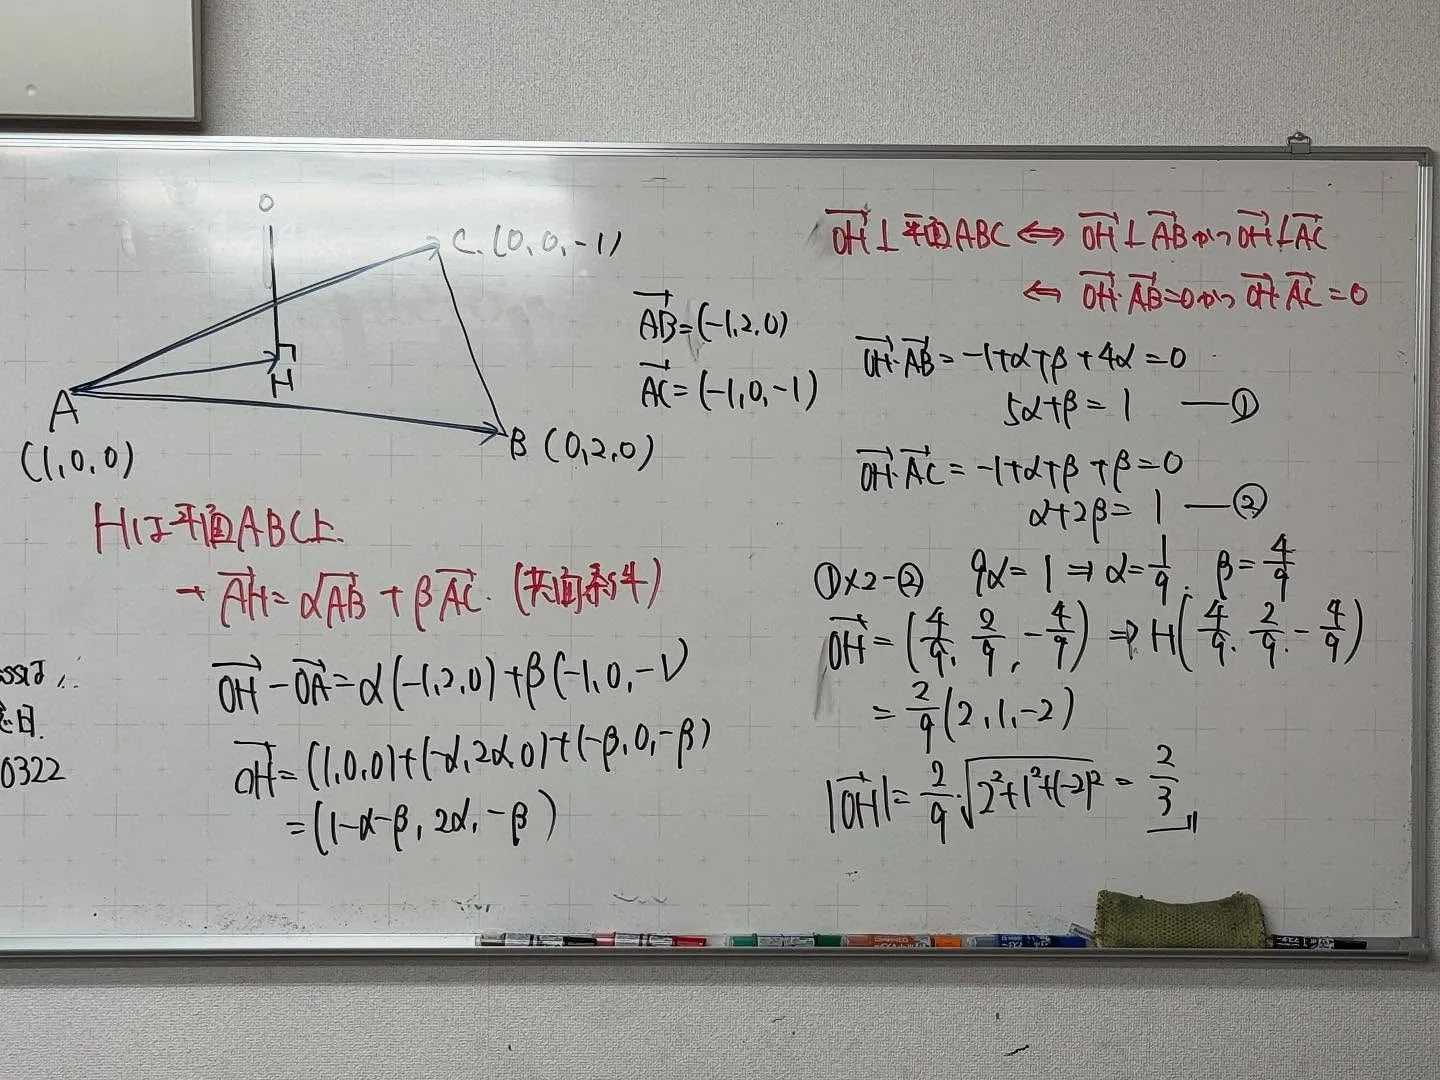 O
C.(0,0,-1)
H
A
(1,0,0)
B (0,2,0)
→AB=(-1,2,0)
→AC=(-1,0,-1)
Hは平面ABC上
→ →AH=α→AB+β→AC. (共面条件)
→OH-→OA=α(-1,2,0)+β(-1,0,-1)
→OH=(1,0,0)+(-α,2α,0)+(-β,0,-β)
=(1-α-β, 2α, -β)
0322
→OH⊥平面ABC⇔→OH⊥→ABかつ→OH⊥→AC
⇔→OH・→AB=0かつ→OH・→AC=0
→OH・→AB=-1+α+β+4α=0
5α+β=1 —①
→OH・→AC=-1+α+β+β=0
α+2β=1 —②
①×2-② 9α=1⇒α=1/9. β=4/9
→OH=(4/9, 2/9, -4/9)⇒H(4/9, 2/9, -4/9)
=2/9(2,1,-2)
|→OH|=2/9・√2²+1²+(-2)²=2/3